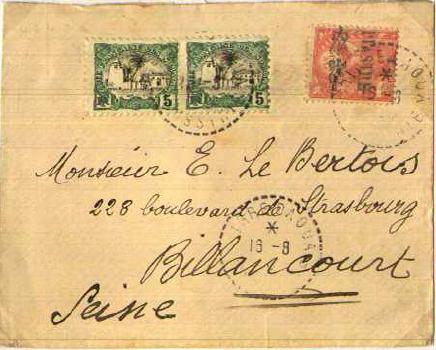 5 5
Monsieur E. Le Bertois
228 boulevard de Strasbourg
16 -8
Billancourt
Seine